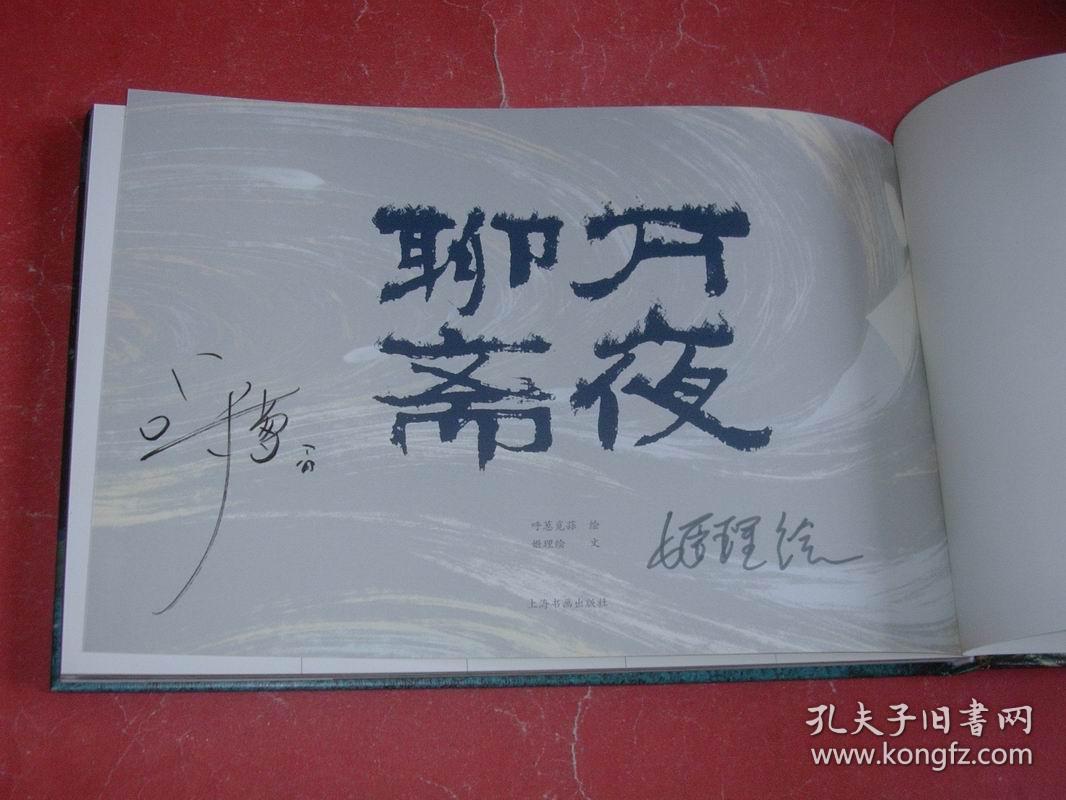 万夜
聊斋
呼葱觅蒜 绘
姬理绘 文
姬理绘
上海书画出版社
孔夫子旧書网
www.kongfz.com